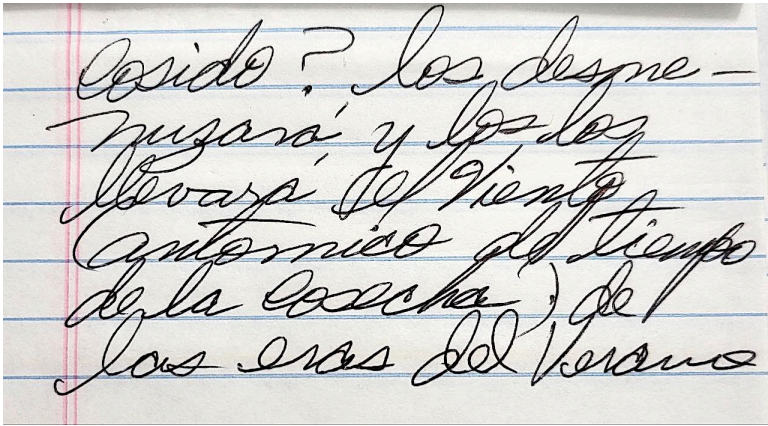 Cosido? los desme-
nuzará, y los los
llevará, el Viento
(antomico del tiempo
de la cosecha,) de
las eras del Verano